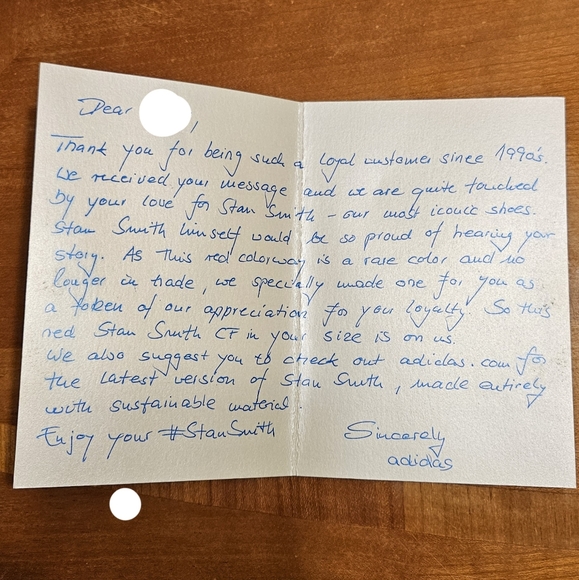 Dear ,
Thank you for being such a loyal customer since 1990's.
We received your message and we are quite touched
by your love for Stan Smith – our most iconic shoes.
Stan Smith himself would be so proud of hearing your
story. As this red colorway is a rare color and no
longer in trade, we specially made one for you as
a token of our appreciation for your loyalty. So this
red Stan Smith CF in your size is on us.
We also suggest you to check out adidas.com for
the latest version of Stan Smith, made entirely
with sustainable material.
Enjoy your #StanSmith
Sincerely
adidas